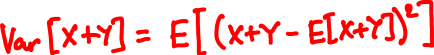 Var[X+Y] = E[(X+Y - E[X+Y])²]